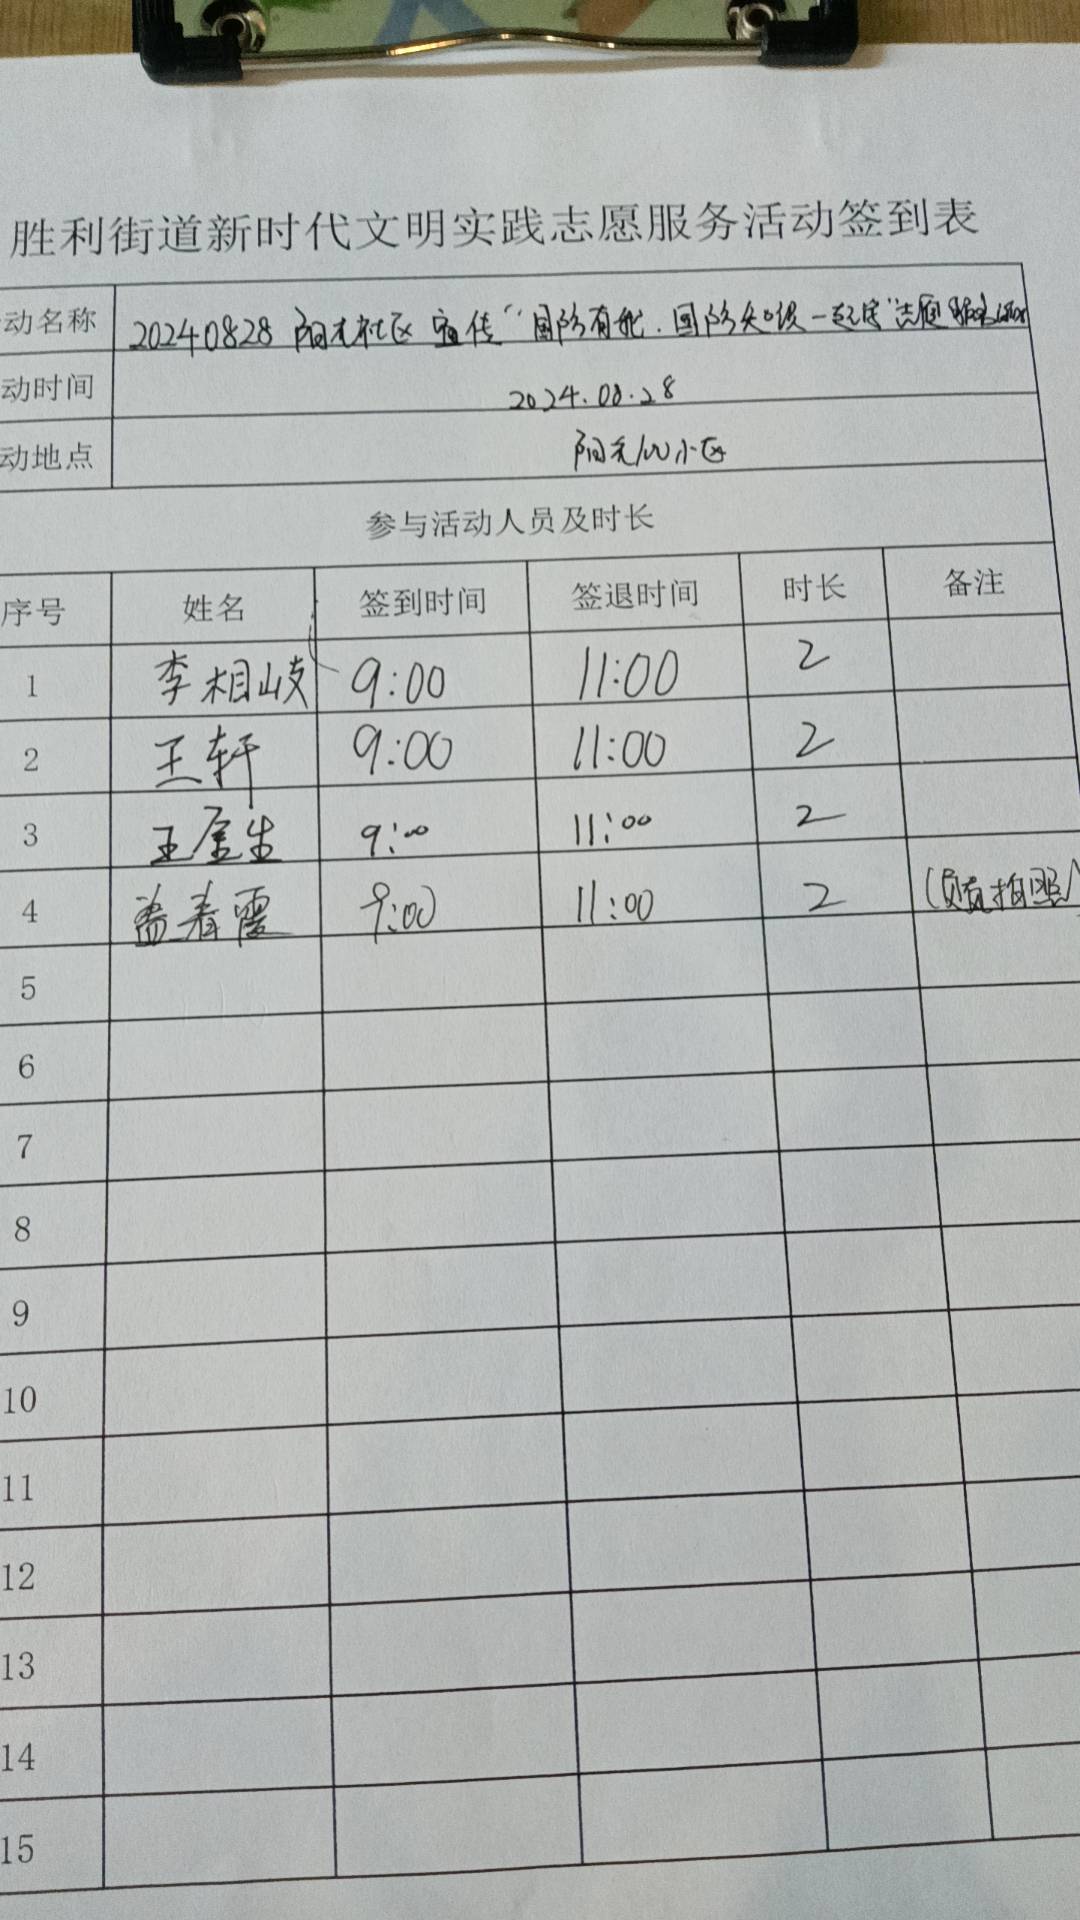 胜利街道新时代文明实践志愿服务活动签到表
动名称 20240828 阳光社区 宣传“国防有我.国防知识一起学”志愿服务活动
动时间 2024.08.28
动地点 阳光100小区
参与活动人员及时长
序号 姓名 签到时间 签退时间 时长 备注
1 李相岐 9:00 11:00 2
2 王轩 9:00 11:00 2
3 王金生 9:00 11:00 2
4 盖春霞 9:00 11:00 2 (负责拍照)
5
6
7
8
9
10
11
12
13
14
15